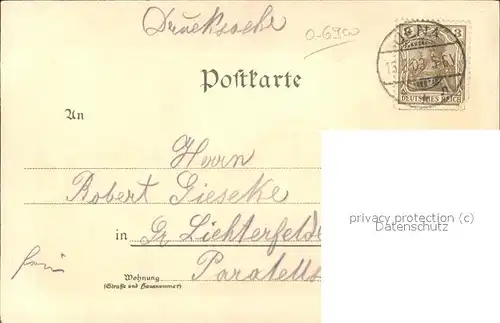 Drucksache
0-6900
JENA
3
DEUTSCHES REICH
Postkarte
An
Herrn
Robert Gieseke
in Gr. Lichterfelde
Wohnung
(Straße und Hausnummer)
privacy protection (c)
Datenschutz